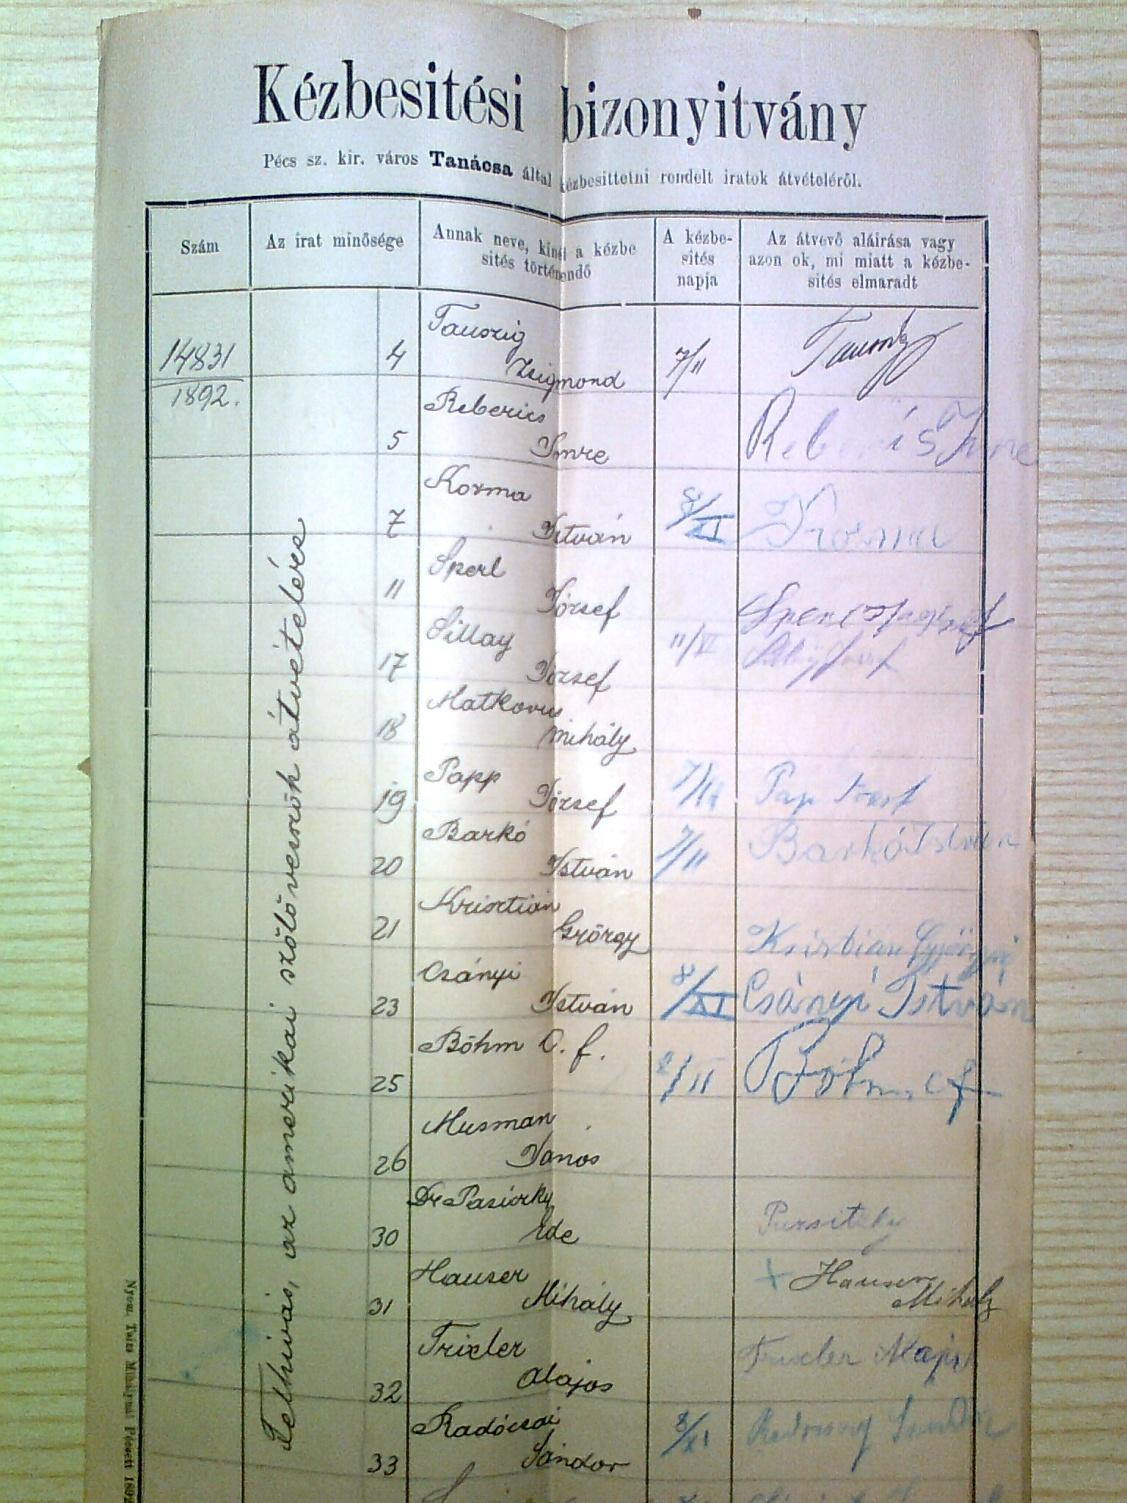 Kézbesitési bizonyitvány
Pécs sz. kir. város Tanácsa által kézbesittetni rendelt iratok átvételéről.
Szám
Az irat minősége
Annak neve, kinél a kézbe
sités történendő
A kézbe-
sités
napja
Az átvevő aláirása vagy
azon ok, mi miatt a kézbe-
sités elmaradt
14831
1892.
Felhivás, az amerikai szőlővesszők átvételére
4 Tauszig
Zsigmond 7/11
5 Reberics
Imre Imre
7 Korma
István 8/XI Korma
11 Sperl
József
17 Sillay
József 11/XI
18 Matkovics
Mihály
19 Papp
József 7/11 Pap
20 Barkó
István 7/11 Barkó István
21 Krisztián
György Kristian György
23 Csányi
István 8/XI Csányi István
25 Böhm C. f. 8/11 Böhm C f
26 Musman
János
30 Dr
Ede
31 Hauser
Mihály + Hauser
Mihály
32 Trixler
Alajos Trixler Alajos
33 Radócsai
Sándor 8/XI Sándor